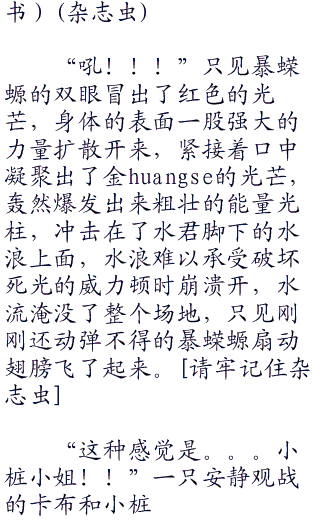 书）（杂志虫）
“吼！！！”只见暴蝾
螈的双眼冒出了红色的光
芒，身体的表面一股强大的
力量扩散开来，紧接着口中
凝聚出了金huangse的光芒，
轰然爆发出来粗壮的能量光
柱，冲击在了水君脚下的水
浪上面，水浪难以承受破坏
死光的威力顿时崩溃开，水
流淹没了整个场地，只见刚
刚还动弹不得的暴蝾螈扇动
翅膀飞了起来。[请牢记住杂
志虫]
“这种感觉是。。。小
桩小姐！！”一只安静观战
的卡布和小桩